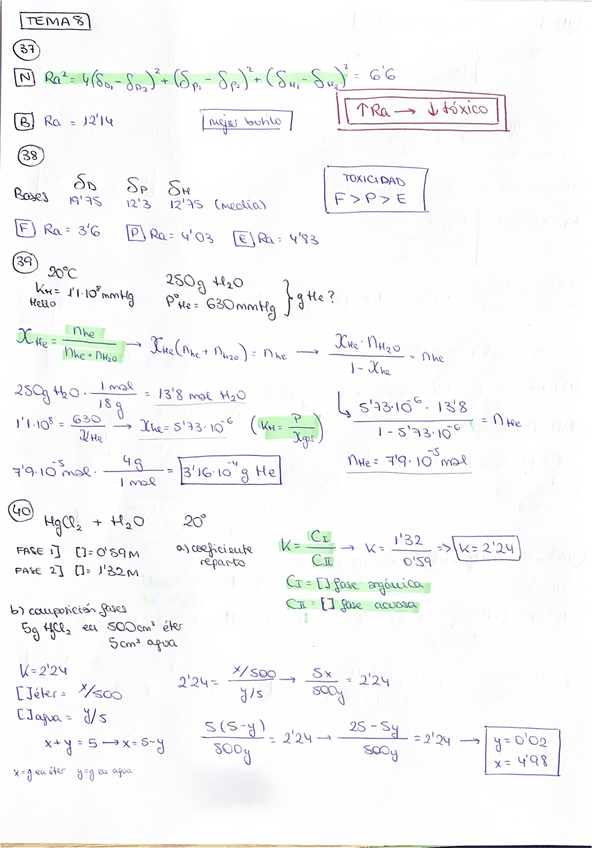 TEMA 8
37
N Ra² = 4(δD₁ - δD₂)² + (δP₁ - δP₂)² + (δH₁ - δH₂)² = 6'6
B Ra = 12'14 mejor butilo
↑Ra → ↓ tóxico
38
Bases δD δP δH
19'75 12'3 12'75 (media)
TOXICIDAD
F > P > E
F Ra = 3'6 P Ra = 4'03 E Ra = 4'83
39
20°C 250g H₂O
KH = 1'1·10⁸ mmHg P°He = 630 mmHg } g He?
Hello
XHe = nhe / nhe + nH₂O → XHe (nhe + nH₂O) = nhe → XHe · nH₂O / 1 - Xhe = nhe
250g H₂O · 1 mol / 18 g = 13'8 mol H₂O
↳ 5'73·10⁻⁶ · 13'8 / 1 - 5'73·10⁻⁶ = nHe
1'1·10⁸ = 630 / XHe → Xhe = 5'73·10⁻⁶ (KH = P / Xgas)
nHe = 7'9·10⁻⁵ mol
7'9·10⁻⁵ mol · 4g / 1 mol = 3'16·10⁻⁴ g He
40
HgCl₂ + H₂O 20°
FASE 1] []= 0'59M a) coeficiente
FASE 2] []= 1'32M reparto
K = CI / CII → K = 1'32 / 0'59 => K = 2'24
CI = [] fase orgánica
CII = [] fase acuosa
b) composición fases
5g HgCl₂ en 500 cm³ éter
5 cm³ agua
K = 2'24
[]éter = x/500
[]agua = y/5
x + y = 5 → x = 5-y
x = g en éter y = g en agua
2'24 = x/500 / y/5 → 5x / 500y = 2'24
5(5-y) / 500y = 2'24 → 25 - 5y / 500y = 2'24 → y = 0'02
x = 4'98